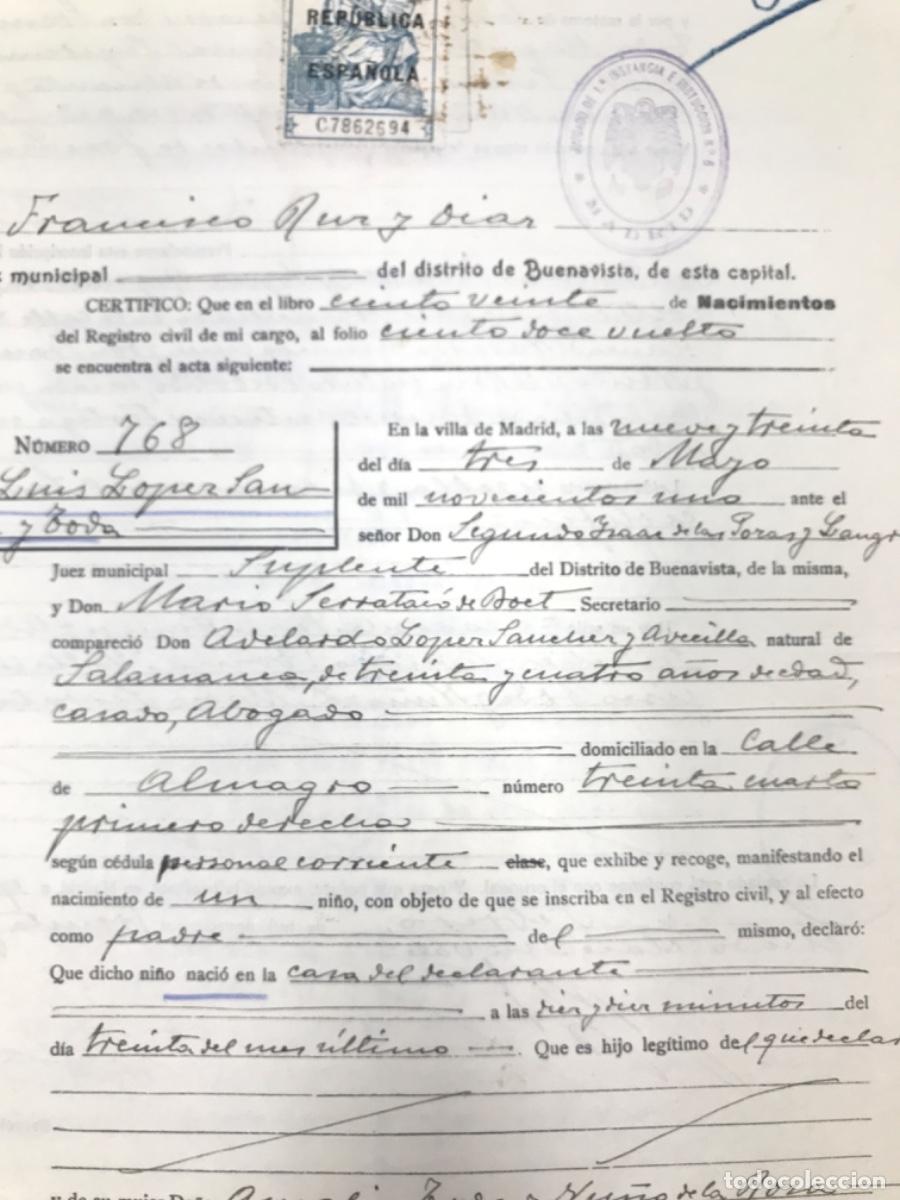 REPÚBLICA
ESPAÑOLA
C7862694
JUZGADO DE 1ª INSTANCIA E INSTRUCCIÓN Nº 6
MADRID
Francisco Rur y Diar
municipal del distrito de Buenavista, de esta capital.
CERTIFICO: Que en el libro ciento veinte de Nacimientos
del Registro civil de mi cargo, al folio ciento doce vuelto
se encuentra el acta siguiente:
NÚMERO 768
Luis Loper San
y Toda
En la villa de Madrid, a las nueve y treinta
del día tres de Mayo
de mil novecientos uno ante el
señor Don Segundo Isaac de las Poras y Langr
Juez municipal Suplente del Distrito de Buenavista, de la misma,
y Don Mario Serratacó de Boet Secretario
compareció Don Avelardo Loper Sancher y Avecilla natural de
Salamanca, de treinta y cuatro años de edad,
casado, Abogado
domiciliado en la Calle
de Almagro número treinta cuarto
primero derecha
según cédula personal corriente clase, que exhibe y recoge, manifestando el
nacimiento de un niño, con objeto de que se inscriba en el Registro civil, y al efecto
como padre del mismo, declaró:
Que dicho niño nació en la casa del declarante
a las dier y dier minutos del
día treinta del mes último. Que es hijo legítimo del que declar
y de su mujer D Toda y Nuño de la Rosa
todocoleccion.net